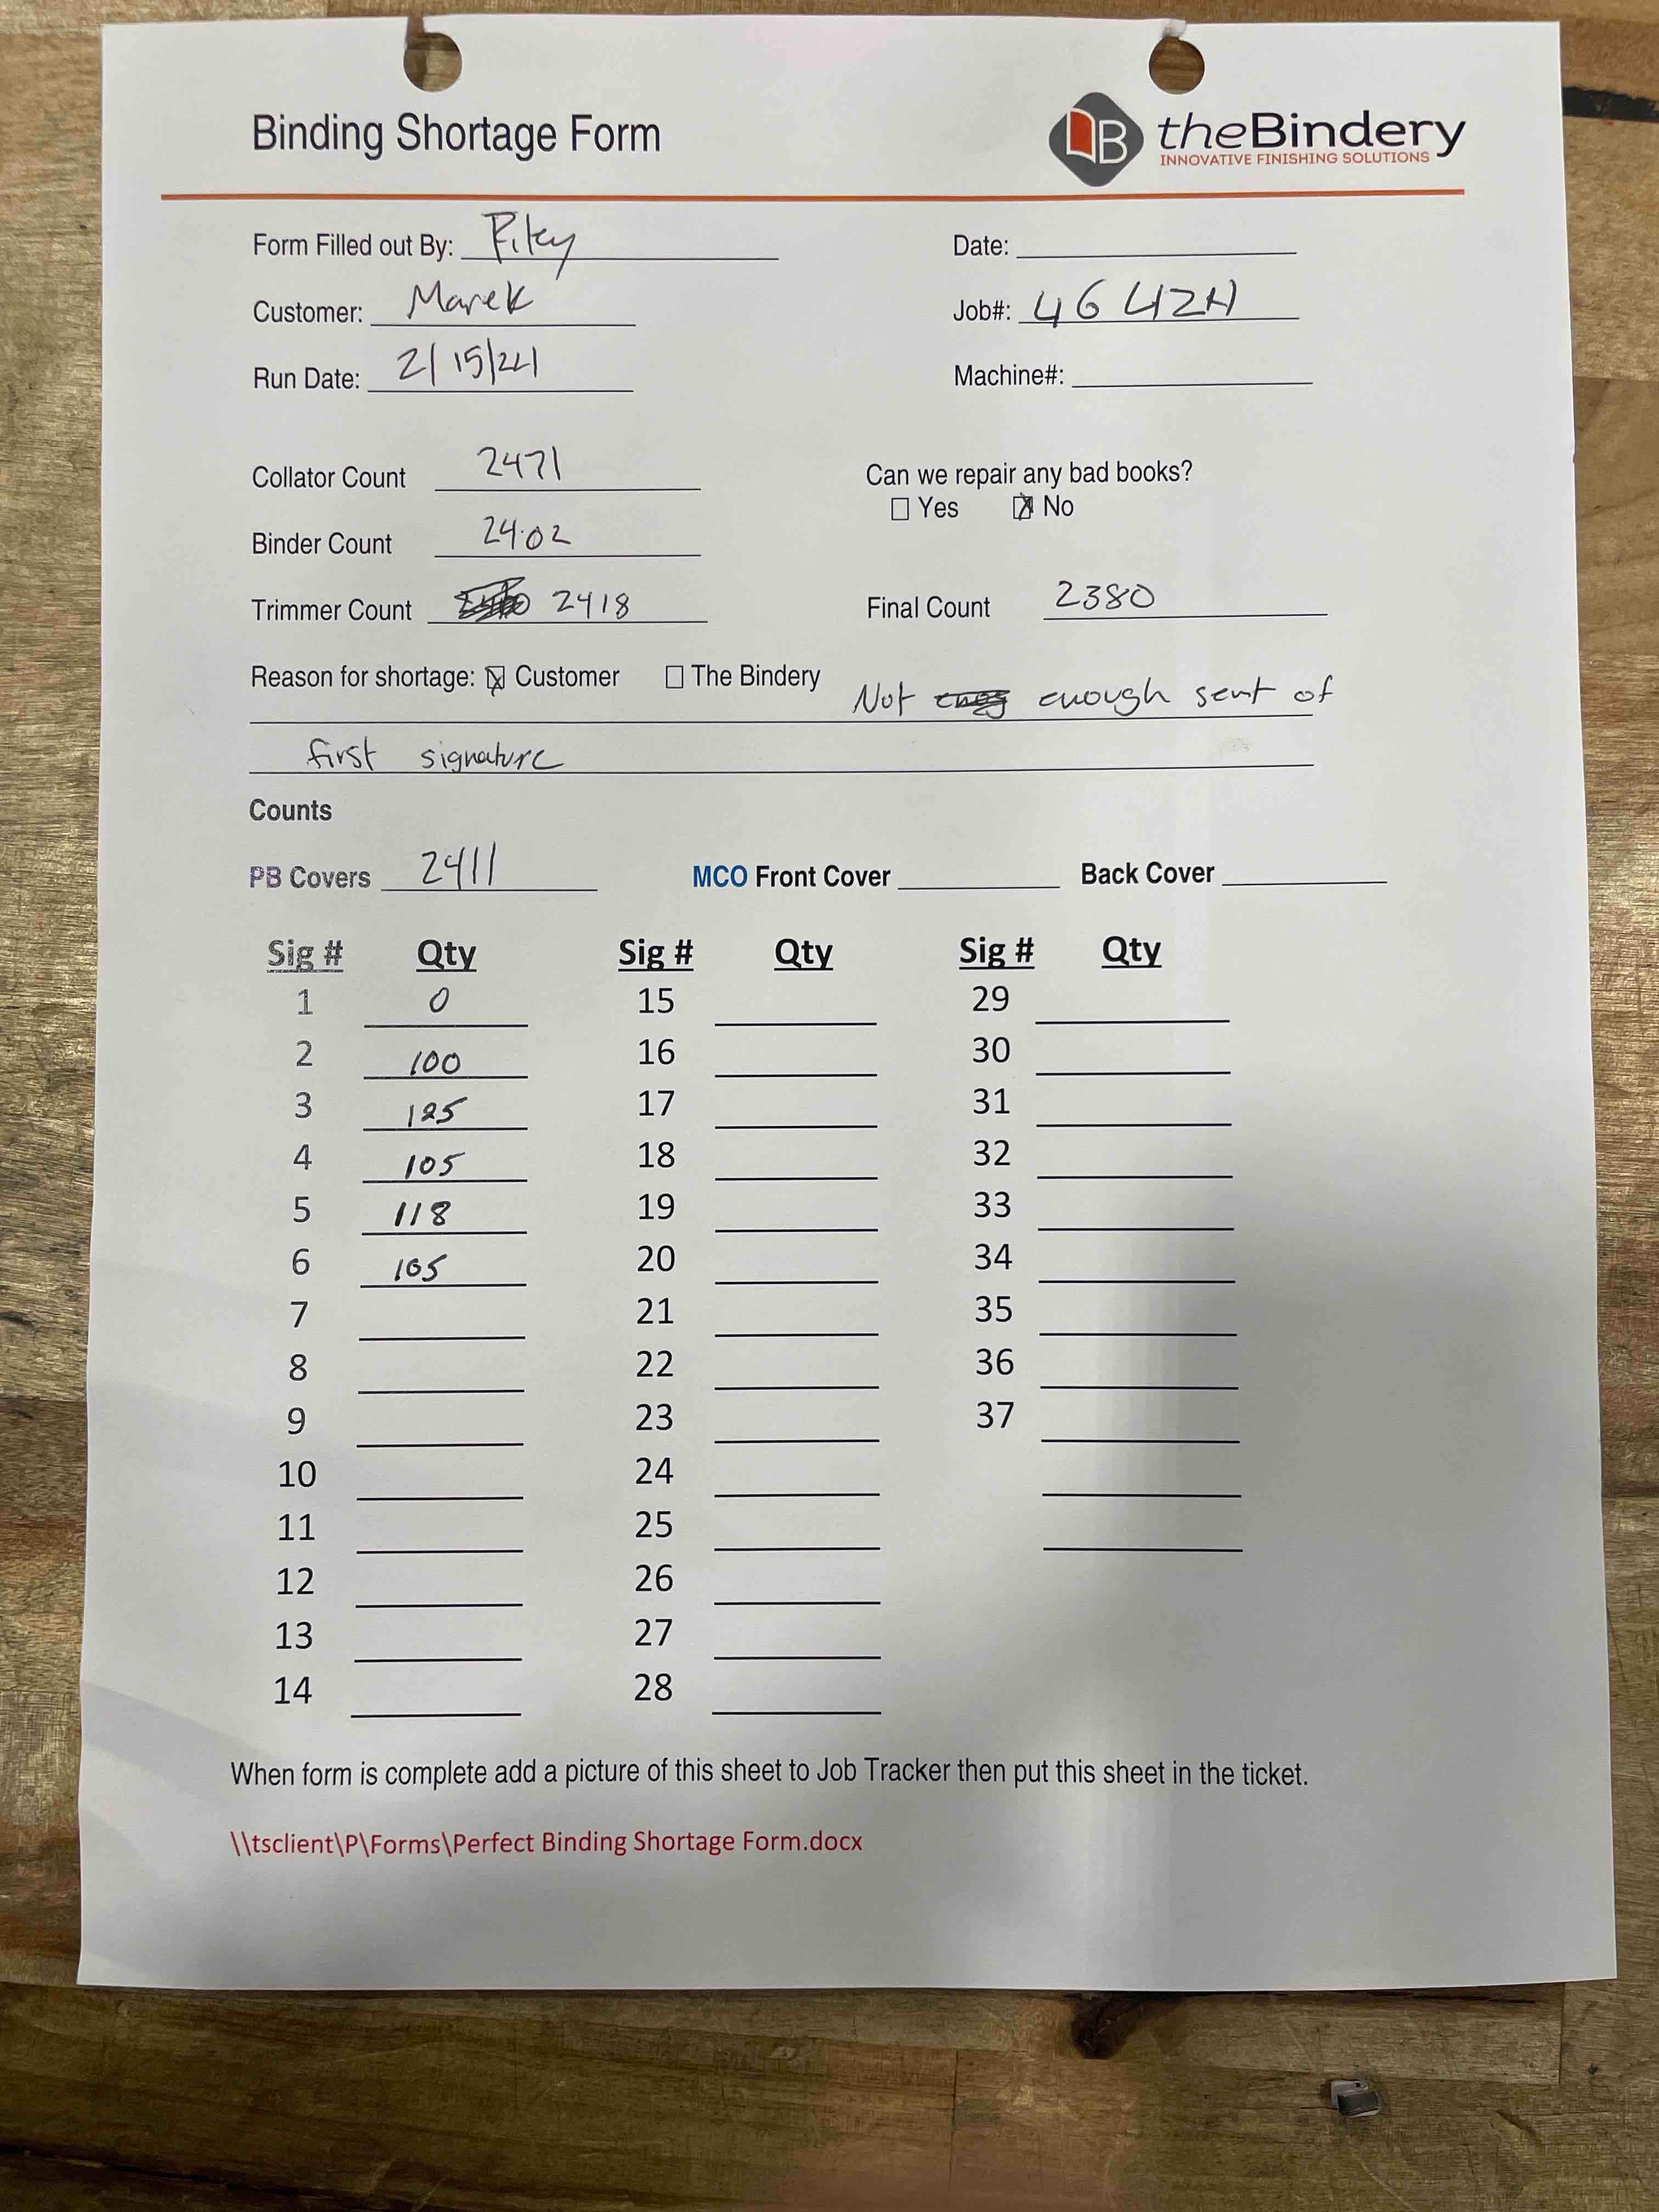 Binding Shortage Form
theBindery
INNOVATIVE FINISHING SOLUTIONS
Form Filled out By: Riley Date:
Customer: Marek Job#:
Run Date: 2/15/24 Machine#:
Collator Count 2471 Can we repair any bad books?
Yes No
Binder Count 2402
Trimmer Count 2418 Final Count 2380
Reason for shortage: Customer The Bindery Not enough sent of
first signature
Counts
PB Covers 2411 MCO Front Cover Back Cover
Sig # Qty Sig # Qty Sig # Qty
1 0 15 29
2 100 16 30
3 125 17 31
4 105 18 32
5 118 19 33
6 105 20 34
7 21 35
8 22 36
9 23 37
10 24
11 25
12 26
13 27
14 28
When form is complete add a picture of this sheet to Job Tracker then put this sheet in the ticket.
\\tsclient\P\Forms\Perfect Binding Shortage Form.docx